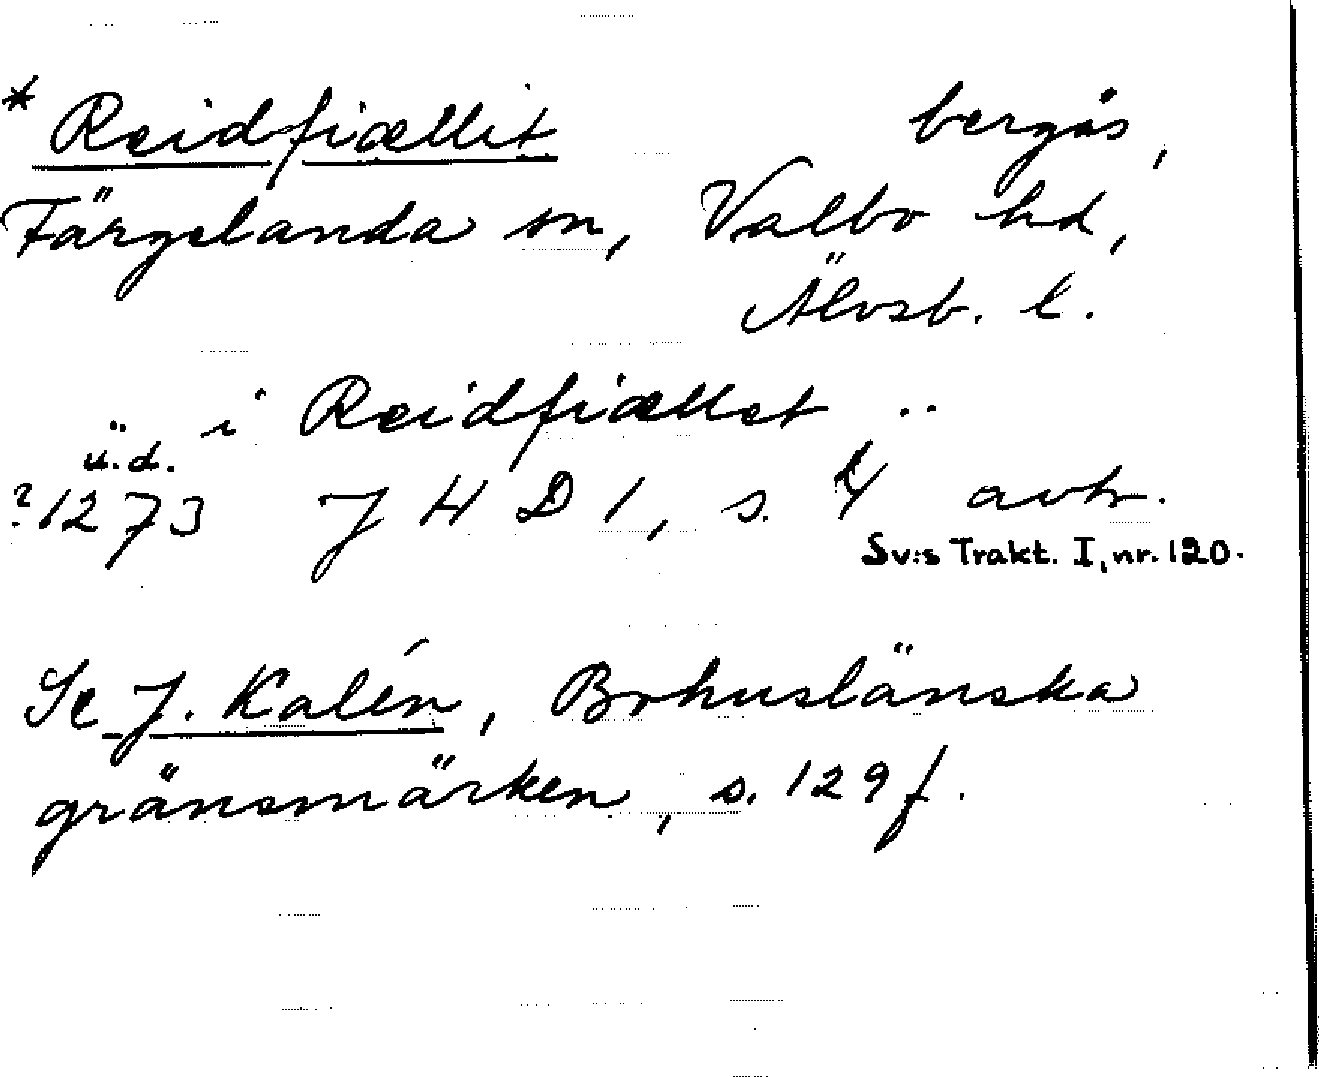 * Reidfiællit bergås,
Färgelanda sn, Valbo hd,
Älvsb. l.
i Reidfiællet ..
u.d.
?1273 J H D 1, s. 4 avtr.
Sv:s Trakt. I, nr. 120.
Se J. Kalén, Bohuslänska
gränsmärken, s. 129 f.